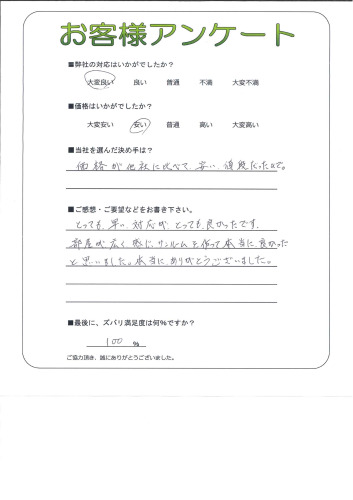 お客様アンケート
■弊社の対応はいかがでしたか？
大変良い 良い 普通 不満 大変不満
■価格はいかがでしたか？
大変安い 安い 普通 高い 大変高い
■当社を選んだ決め手は？
価格が他社に比べて、安い、値段だったので。
■ご感想・ご要望などをお書き下さい。
とっても、早い、対応が、とっても、良かったです。
部屋が、広く感じ、サンルームを作って本当に良かった
と思いました。本当に、ありがとうございました。
■最後に、ズバリ満足度は何%ですか？
100 %
ご協力頂き、誠にありがとうございました。